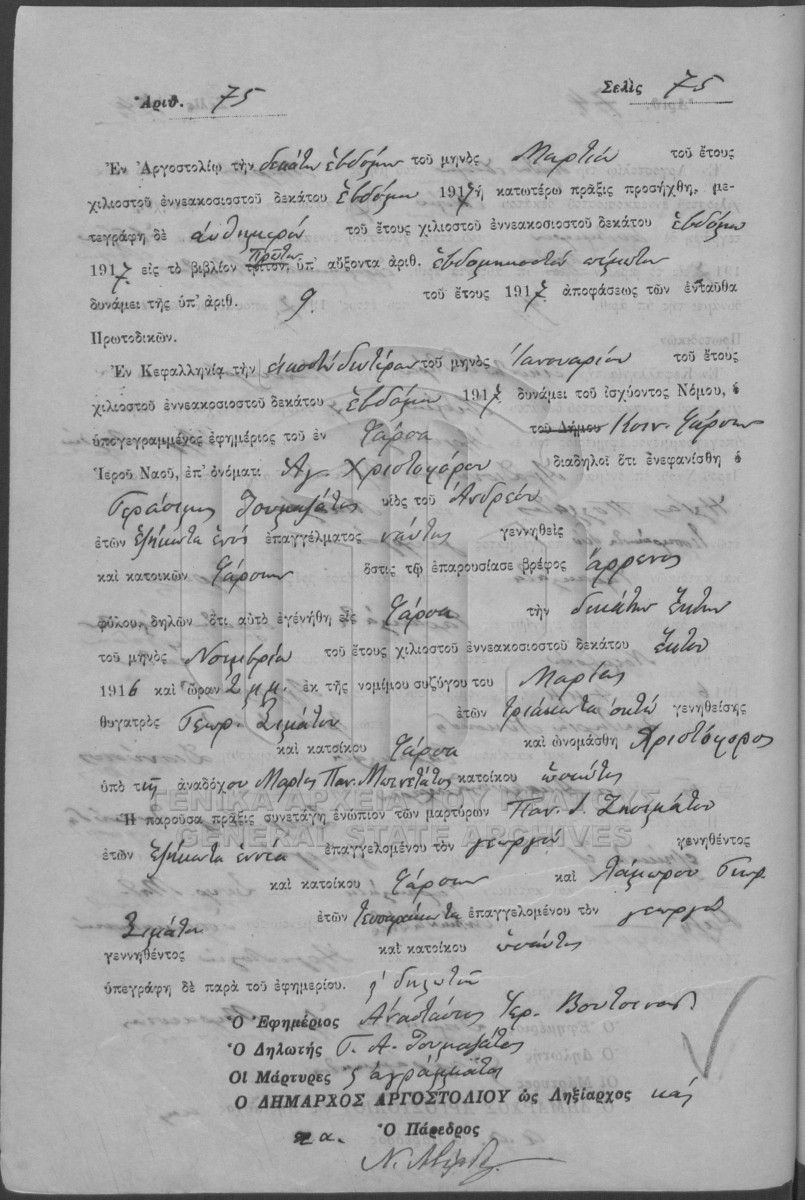 Ἀριθ. 75
Σελὶς 75
Ἐν Ἀργοστολίῳ τὴν δεκάτην ἑβδόμην τοῦ μηνὸς Μαρτίου τοῦ ἔτους
χιλιοστοῦ ἐννεακοσιοστοῦ δεκάτου ἑβδόμου 1917 ἡ κατωτέρω πρᾶξις προσήχθη, με-
τεγράφη δὲ αὐθημερὸν τοῦ ἔτους χιλιοστοῦ ἐννεακοσιοστοῦ δεκάτου ἑβδόμου
1917 εἰς τὸ βιβλίον τρίτον, πρῶτον ὑπ' αὔξοντα ἀριθ. ἑβδομηκοστὸν πέμπτον
δυνάμει τῆς ὑπ' ἀριθ. 9 τοῦ ἔτους 1917 ἀποφάσεως τῶν ἐνταῦθα
Πρωτοδικῶν.
Ἐν Κεφαλληνίᾳ τὴν εἰκοστὴν δευτέραν τοῦ μηνὸς Ἰανουαρίου τοῦ ἔτους
χιλιοστοῦ ἐννεακοσιοστοῦ δεκάτου ἑβδόμου 1917 δυνάμει τοῦ ἰσχύοντος Νόμου, ὁ
ὑπογεγραμμένος ἐφημέριος τοῦ ἐν Φάρσα τοῦ Δήμου Κοιν. Φάρσων
Ἱεροῦ Ναοῦ, ἐπ' ὀνόματι Ἁγ. Χριστοφόρου διαδηλοῖ ὅτι ἐνεφανίσθη ὁ
Γεράσιμος Τουμαζάτος υἱὸς τοῦ Ἀνδρέου
ἐτῶν ἑξήκοντα ἑνὸς ἐπαγγέλματος ναύτης γεννηθεὶς
καὶ κατοικῶν Φάρσων ὅστις τῷ ἐπαρουσίασε βρέφος ἄρρενος
φύλου, δηλῶν ὅτι αὐτὸ ἐγενήθη εἰς Φάρσα τὴν δεκάτην ἕκτην
τοῦ μηνὸς Νοεμβρίου τοῦ ἔτους χιλιοστοῦ ἐννεακοσιοστοῦ δεκάτου ἕκτου
1916 καὶ ὥραν 2 μ.μ. ἐκ τῆς νομίμου συζύγου του Μαρίας
θυγατρὸς Γεωρ. Σιμάτου ἐτῶν τριάκοντα ὀκτὼ γενηθείσης
καὶ κατοίκου Φάρσα καὶ ὠνομάσθη Χριστόφορος
ὑπὸ τῆς ἀναδόχου Μαρίας Παν. κατοίκου ὡσαύτως
Ἡ παροῦσα πρᾶξις συνετάγη ἐνώπιον τῶν μαρτύρων Παν.
ἐτῶν ἑξήκοντα ἐννέα ἐπαγγελομένου τὸν γεωργὸν γενηθέντος
καὶ κατοίκου Φάρσων καὶ Γεωρ.
Σιμάτου ἐτῶν τεσσαράκοντα ἐπαγγελομένου τὸν γεωργὸν
γεννηθέντος καὶ κατοίκου ὡσαύτως
ὑπεγράφη δὲ παρὰ τοῦ ἐφημερίου.
Ὁ Ἐφημέριος Ἀναστάσιος Ἱερ.
Ὁ Δηλωτὴς Γ. Α. Τουμαζάτος
Οἱ Μάρτυρες ἀγράμματοι
Ο ΔΗΜΑΡΧΟΣ ΑΡΓΟΣΤΟΛΙΟΥ ὡς Ληξίαρχος
Ὁ Πάρεδρος
ΓΕΝΙΚΑ ΑΡΧΕΙΑ ΤΟΥ ΚΡΑΤΟΥΣ
GENERAL STATE ARCHIVES